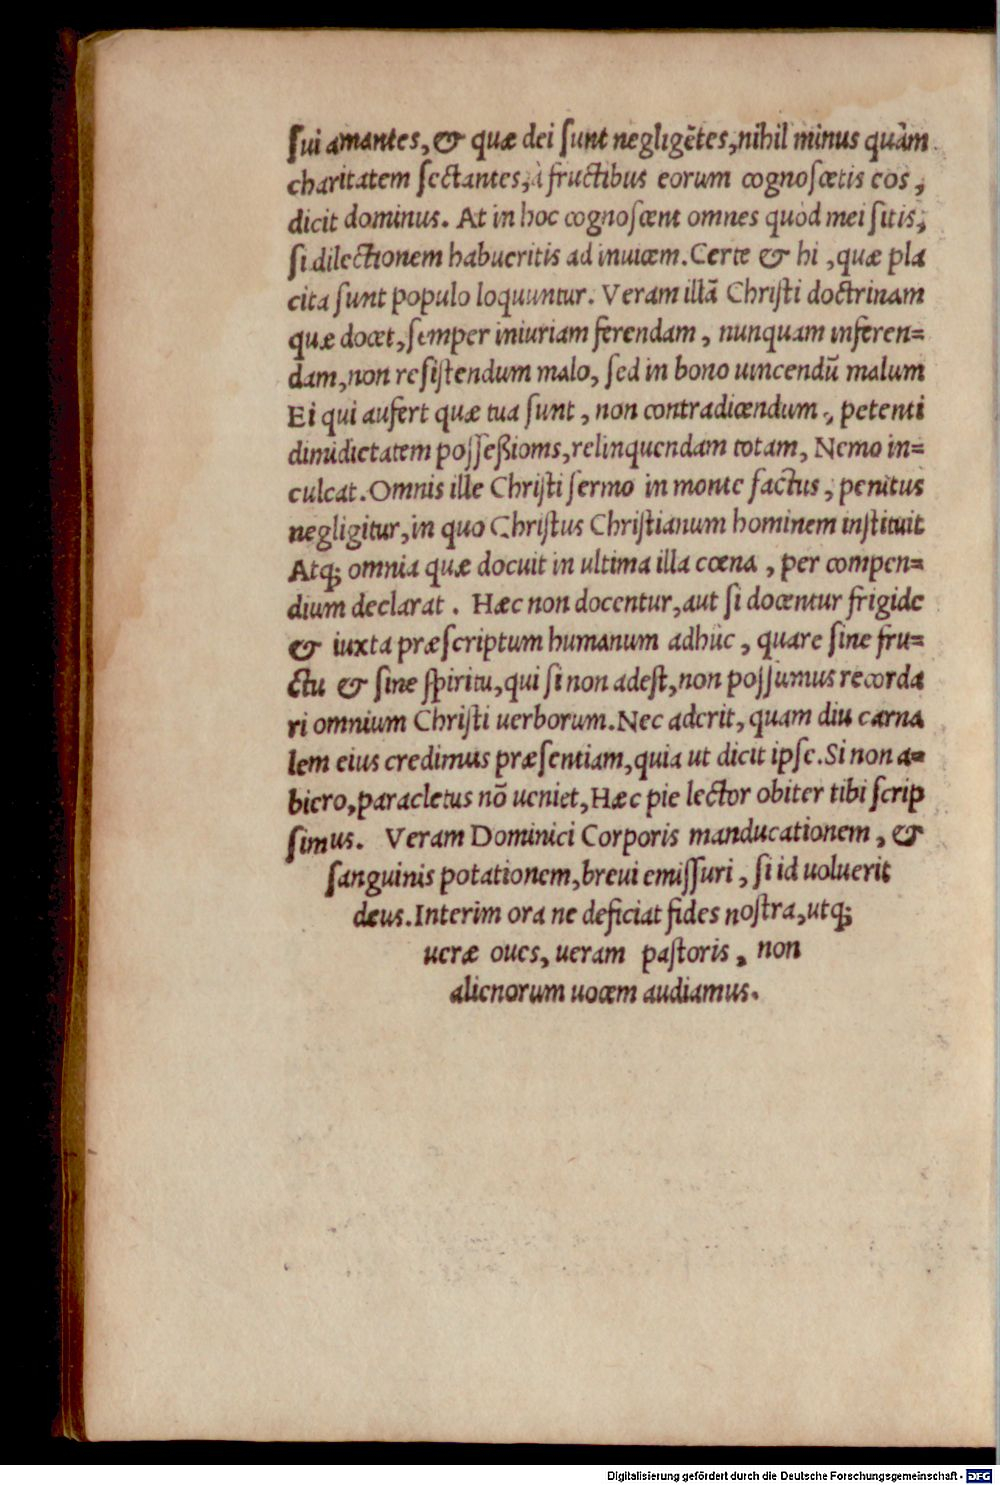 ſui amantes, & quæ dei ſunt negligētes, nihil minus quàm
charitatem ſectantes, à fructibus eorum cognoſcetis eos,
dicit dominus. At in hoc cognoſcent omnes quòd mei ſitis,
ſi dilectionem habueritis ad inuicem. Certe & hi, quæ pla
cita ſunt populo loquuntur. Veram illā Chriſti doctrinam
quæ docet, ſemper iniuriam ferendam, nunquam inferen=
dam, non reſiſtendum malo, ſed in bono uincendū malum
Ei qui aufert quæ tua ſunt, non contradicendum, petenti
dimidietatem poſſeßionis, relinquendam totam, Nemo in=
culcat. Omnis ille Chriſti ſermo in monte factus, penitus
negligitur, in quo Chriſtus Chriſtianum hominem inſtituit
Atq; omnia quæ docuit in ultima illa cœna, per compen=
dium declarat. Hæc non docentur, aut ſi docentur frigide
& iuxta præſcriptum humanum adhuc, quare ſine fru=
ctu & ſine ſpiritu, qui ſi non adeſt, non poſſumus recorda
ri omnium Chriſti uerborum. Nec aderit, quam diu carna
lem eius credimus præſentiam, quia ut dicit ipſe. Si non a=
biero, paracletus nō ueniet, Hæc pie lector obiter tibi ſcrip
ſimus. Veram Dominici Corporis manducationem, &
ſanguinis potationem, breui emiſſuri, ſi id uoluerit
deus. Interim ora ne deficiat fides noſtra, utq;
ueræ oues, ueram paſtoris, non
alienorum uocem audiamus.
Digitalisierung gefördert durch die Deutsche Forschungsgemeinschaft - DFG